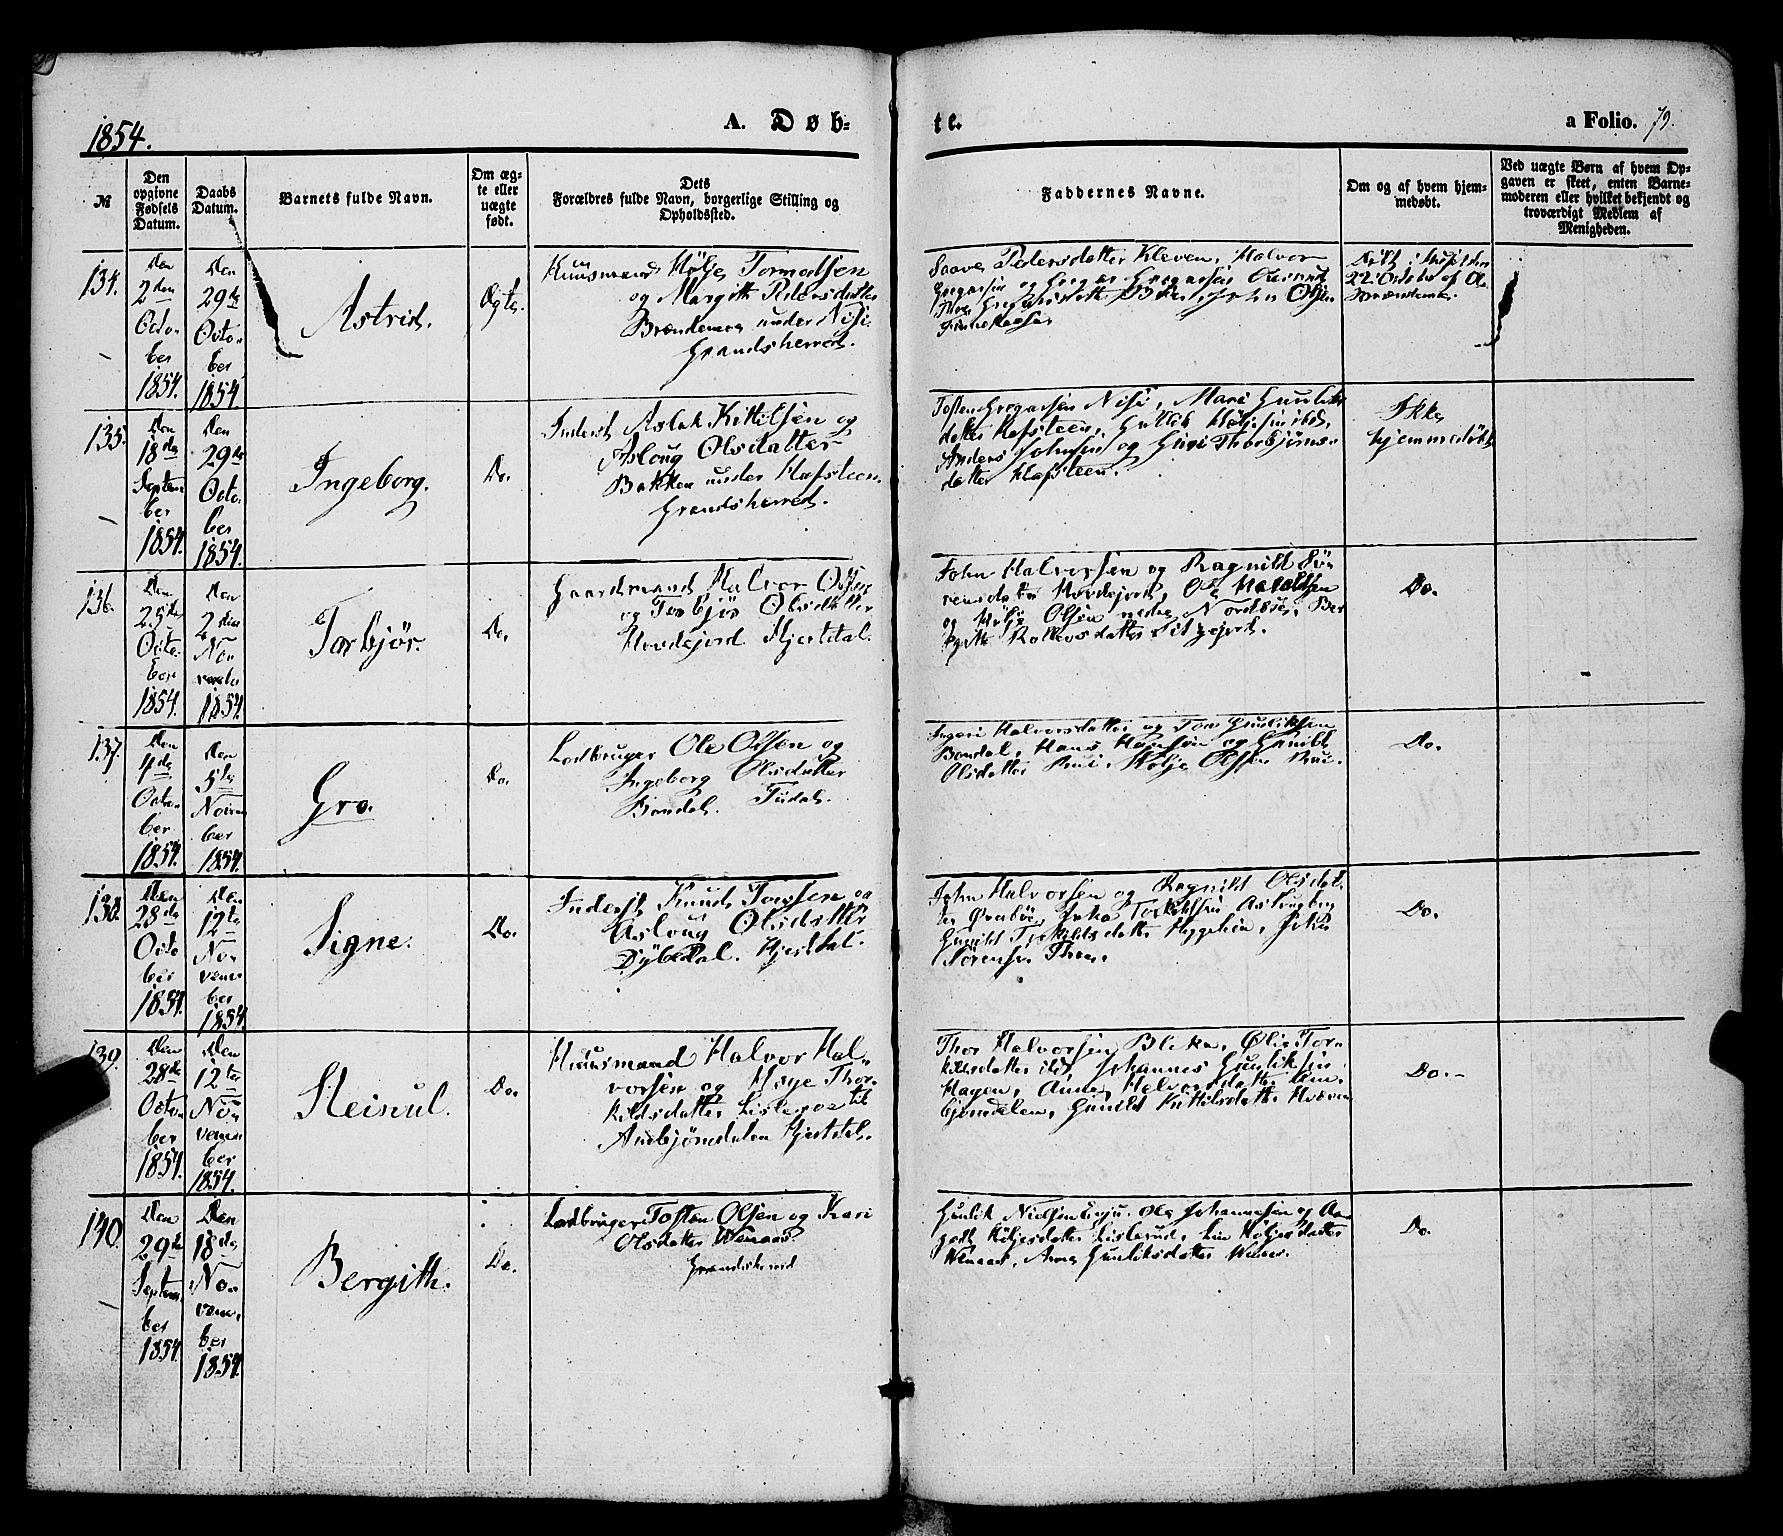 1854.
A. Døb-
te.
a Folio. 79.
№
Den
opgivne
Fødsels
Datum.
Daabs
Datum.
Barnets fulde Navn.
Om æg-
te eller
uægte
født.
Dets
Forældres fulde Navn, borgerlige Stilling og
Opholdssted.
Faddernes Navne.
Om og af hvem hjem-
medøbt.
Ved uægte Børn af hvem Op-
gaven er skeet, enten Barne-
moderen eller hvilket bekjendt og
troværdigt Medlem af
Menigheden.
134.
Den
2den
Octo-
ber
1854.
Den
29de
Octo-
ber
1854.
Astrid.
Ægte.
Huusmand Hølje Tormodsen
og Margith Pedersdatter
Brændemoe under Nisi
Grandsherred.
Saave Pedersdatter Kleven, Halvor
Gregarsen og Gregar Gregarsen
Gregarsdatter John Olsen
22 October af
135.
Den
18de
Septem
ber
1854.
Den
29de
Octo-
ber
1854.
Ingeborg.
Do.
Inderst Aslak Kittilsen og
Asloug Olsdatter
Bakken under Hafsteen
Grandsherred.
Tosten Gregarsen Nisi, Mari Gunliks
datter Hafsteen, Gullik Høljesen ibid,
Anders Johnsen og Guri Thorbjørns-
datter Hafsteen.
Ikke
hjemmedøbt
136.
Den
25de
Octo-
ber
1854.
Den
2den
No-
vember
1854.
Torbjør.
Do.
Gaardmand Halvor Olsen
og Torbjør Olsdatter
Hovdejord Hjertdal.
John Halvorsen og Ragnild Sø-
rensdatter Hovdejord, Ole
og Hølje Olsen nedre Nordbøe, Ber
gitte
Do.
137.
Den
4de
Octo-
ber
1854.
Den
5te
Novem
ber
1854.
Gro.
Do.
Lodbruger Ole Olsen og
Ingeborg Olsdatter
Bondal. Tudal.
Ingeri Halvorsdatter og Tov Gunliksen
Bondal, Hans Hansen og Gunild
Olsdatter Rui. Hølje Olsen Rui.
Do.
138.
Den
28de
Octo
ber
1854.
Den
12te
No-
vem
ber
1854.
Signe.
Do.
Inderst Knud Tovsen og
Asloug Olsdatter
Dybedal. Hjertdal.
John Halvorsen og Ragnild Olsdat-
ter
Gunild Torkildsdatter
Sørensen
Do.
139.
Den
28de
Octo-
ber
1854.
Den
12te
No-
vem
ber
1854.
Steinul.
Do.
Huusmand Halvor Hal-
vorsen og Hæge Thor-
kildsdatter
Ambjømdalen Hjertdal.
Thor Halvorsen Bleka, Ølie Tor-
kildsdatter ibid, Johannes Gunliksen
Hagen, Anne Halvorsdatter Am-
bjømdalen, Gunild Kittilsdatter
Do.-
140.
Den
29de
Septem
ber
1854.
Den
18de
No-
vem-
ber
1854.
Bergith.
Do.
Lodbruger Tosten Olsen og Kari
Olsdatter Wenaas
Grandsherred
Gunlik Nielsen Ole Johannesen og Aa
goth Høljesdatter Lislerud, Høljesdatter
Wenaas, Anne Gunliksdatter Wenaas.
Do.